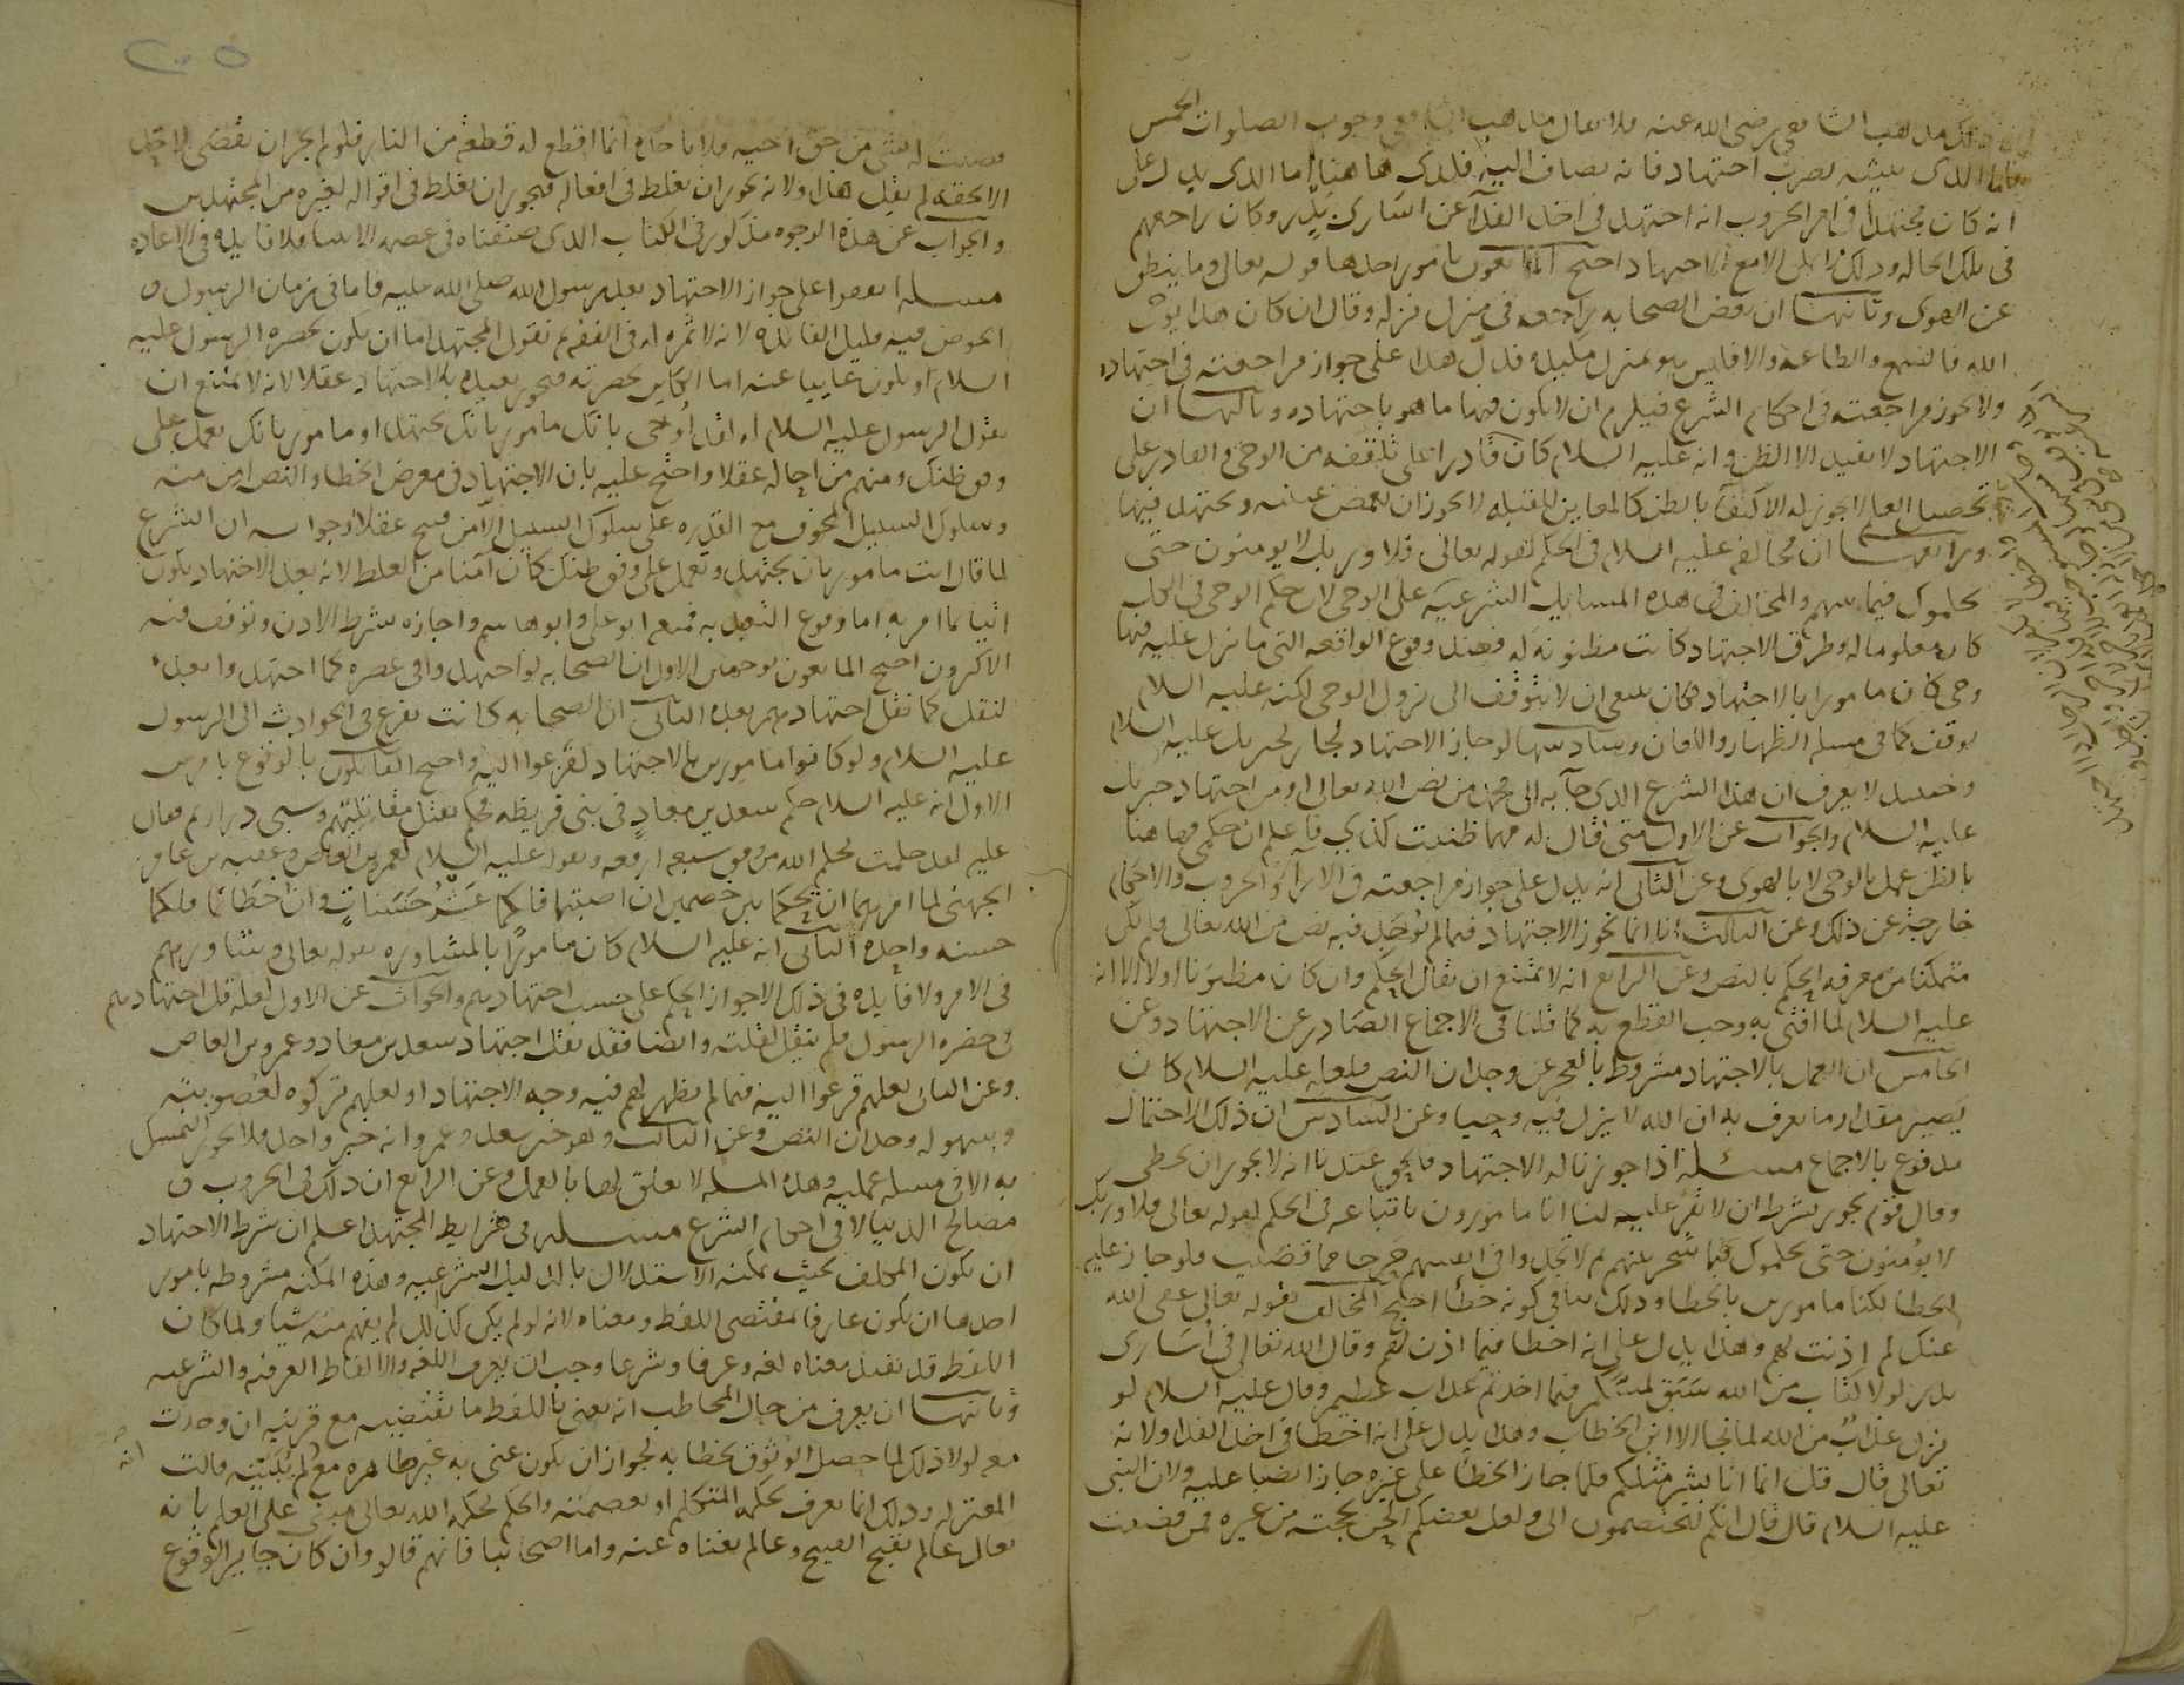 ان ذلك مذهب الشافعي رضي الله عنه فلا يقال مذهب الشافعي وجوب الصلوات الخمس
فاما الذي يثبته بضرب اجتهاد فانه يضاف اليه فكذى هاهنا اما الذي يدل على
انه كان مجتهدا في امر الحروب انه اجتهد في اخذ الفدآ عن اسارى بدر وكان راجعهم
في تلك الحاله وذلك لا يكون الا مع الاجتهاد احتج المانعون بامور احدها قوله تعالى وما ينطق
عن الهوى وثانيها ان بعض الصحابه راجعه في منزل نزله وقال ان كان هذا بوحي
الله فالسمع والطاعه والا فليس هو بمنزل مكيدة فدل هذا على جواز مراجعته في اجتهاده
ولا يجوز مراجعته في احكام الشرع فيلزم ان لا يكون فيها ما هو باجتهاده وثالثها ان
الاجتهاد لا يفيد الا الظن وانه عليه السلام كان قادرا على تلقفه من الوحي والقادر على
تحصيل العلم لا يجوز له الاكتفآ بالظن كالمعاين للقبله لا يجوز ان يغمض عينيه ويجتهد فيها
ورابعها ان مخالفه عليه السلام في الحكم لقوله تعالى فلا وربك لا يومنون حتى
يحكموك فيما بينهم والمخالف في هذه المسايل الشرعيه على الوحي لان حكم الوحي في الكل
كان معلوما له وطرق الاجتهاد كانت مظنونه له فعند وقوع الواقعه التي ما نزل عليه فيها
وحي كان مامورا بالاجتهاد فكان ينبغي ان لا يتوقف الى نزول الوحي لكنه عليه السلام
توقف كما في مسله الظهار واللعان وسادسها لو جاز الاجتهاد لجاز لجبريل عليه السلام
وحينيذ لا يعرف ان هذا الشرع الذي جآ به الى محمد من نص الله تعالى او من اجتهاد جبريل
عليه السلام والجواب عن الاول متى قال له مهما ظننت كذى فاعلم ان حكمي فهاهنا
بالظن عمل بالوحي لا بالهوى وعن الثاني انه يدل على جواز مراجعته في الارآ والحروب والاحكام
خارجة عن ذلك وعن الثالث انا انما نجوز الاجتهاد فيما لم يوجد فيه نص من الله تعالى ولم يكن
متمكنا من معرفه الحكم بالنص وعن الرابع انه لا يمتنع ان يقال الحكم وان كان مظنونا اولا الا انه
عليه السلام لما افتى به وجب القطع به كما قلنا في الاجماع الصادر عن الاجتهاد وعن
الخامس ان العمل بالاجتهاد مشروط بالعجز عن وجدان النص فلعله عليه السلام كان
يصبر مقدار ما يعرف به ان الله لا ينزل فيه وحيا وعن السادس ان ذلك الاحتمال
مدفوع بالاجماع مسئلة اذا جوزنا له الاجتهاد فالحق عندنا انه لا يجوز ان يخطي
وقال قوم يجوز بشرط ان لا يقر عليه لنا انا مامورون باتباعه في الحكم لقوله تعالى فلا وربك
لا يؤمنون حتى يحكموك فيما شجر بينهم ثم لا يجدوا في انفسهم حرجا مما قضيت فلو جاز عليه
الخطا لكنا مامورين بالخطا وذلك ينافي كونه خطأ احتج المخالف بقوله تعالى عفى الله
عنك لم اذنت لهم وهذا يدل على انه اخطا فيما اذن لهم وقال الله تعالى في اسارى
بدر لولا كتاب من الله سبق لمسكم فيما اخذتم عذاب عظيم وقال عليه السلام لو
نزل عذاب من الله لما نجا الا ابن الخطاب وهذا يدل على انه اخطا في اخذ الفدا ولانه
تعالى قال قل انما انا بشر مثلكم فلما جاز الخطأ على غيره جاز ايضا عليه ولان النبي
عليه السلام قال قال انكم لتختصمون الي ولعل بعضكم الحن بحجته من غيره فمن قضيت
قضيت له بشي من حق اخيه فلا ياخذه انما اقطع له قطعة من النار فلو لم يجز ان يقضي لاحد
الا بحقه لم يقل هذا ولانه يجوز ان يغلط في افعاله فيجوز ان يغلط في اقواله لغيره من المجتهدين
والجواب عن هذه الوجوه مذكور في الكتاب الذي صنفناه في عصمه الانبيا فلا فايده في الاعاده
مسله اتفقوا على جواز الاجتهاد بعد رسول الله صلى الله عليه فاما في زمان الرسول
الخوض فيه قليل الفائده لانه لا ثمره له في الفقه ثم نقول المجتهد اما ان يكون بحضره الرسول عليه
السلام او يكون غايبا عنه اما الكاين بحضرته فيجوز تعبده بالاجتهاد عقلا لانه لا يمتنع ان
يقول الرسول عليه السلام له لقد اوحي بانك مامور بان تجتهد او مامور بانك تعمل على
وفق ظنك ومنهم من احاله عقلا واحتج عليه بان الاجتهاد في معرض الخطا والنص امن منه
وسلوك السبيل المخوف مع القدره على سلوك السبيل الآمن قبيح عقلا وجوابه ان الشرع
لما قال انت مامور بان تجتهد وتعمل على وفق ظنك كان آمنا من الغلط لانه بعد الاجتهاد يكون
اتيا بما امر به اما وقوع التعبد به فمنعه ابو علي وابو هاشم واجازه بشرط الاذن وتوقف فيه
الاكثرون احتج المانعون بوجهين الاول ان الصحابه لو اجتهدوا في عصره كما اجتهدوا بعده
لنقل كما نقل اجتهادهم بعده الثاني ان الصحابه كانت تفزع في الحوادث الى الرسول
عليه السلام ولو كانوا مامورين بالاجتهاد لفزعوا اليه واحتج القايلون بالوقوع بامرين
الاول انه عليه السلام حكم سعد بن معاذ في بني قريظه فحكم بقتل مقاتلتهم وسبي ذراريهم فقال
عليه لقد حكمت بحكم الله من فوق سبعه ارقعه وبقوله عليه السلام لعمرو بن العاص وعقبه بن عامر
الجهني لما امرهما ان يحكما بين خصمين ان اصبتما فلكما عشر حسنات وان اخطاتما فلكما
حسنه واحده الثاني انه عليه السلام كان مامورا بالمشاوره بقوله تعالى وشاورهم
في الامر ولا فايده في ذلك الا جواز الحكم على حسب اجتهادهم والجواب عن الاول لعله قل اجتهادهم
في حضره الرسول فلم ينقل لقلته وايضا فقد نقل اجتهاد سعد بن معاذ وعمرو بن العاص
وعن الثاني لعلهم فزعوا اليه فيما لم يظهر لهم فيه وجه الاجتهاد او لعلهم تركوه لصعوبته
وسهوله وجدان النص وعن الثالث وهو خبر سعد وعمرو انه خبر واحد فلا يجوز التمسك
به الا في مسله عمليه وهذه المسله لا تعلق لها بالعمل وعن الرابع ان ذلك في الحروب و
مصالح الدنيا لا في احكام الشرع مسله في شرايط المجتهد اعلم ان شرط الاجتهاد
ان يكون المكلف بحيث يمكنه الاستدلال بالدليل الشرعيه وهذه المكنه مشروطه بامور
احدها ان يكون عارفا بمقتضى اللفظ ومعناه لانه لو لم يكن كذلك لم يفهم منه شيا ولما كان
اللفظ قد يفيد معناه لغه وعرفا وشرعا وجب ان يعرف اللغه والالفاظ العرفيه والشرعيه
وثانيها ان يعرف من حال المخاطب انه يعني باللفظ ما يقتضيه مع قرينه ان وجدت
معه لولا ذلك لما حصل الوثوق بخطابه لجواز ان يكون عنى به غير ظاهره مع انه لم يبينه قالت
المعتزله وذلك انما يعرف بحكمه المتكلم او بعصمته والحكم بحكمه الله تعالى مبني على العلم بانه
تعالى عالم بقبح القبيح وعالم بغناه عنه واما اصحابنا فانهم قالو وان كان جايز الوقوع